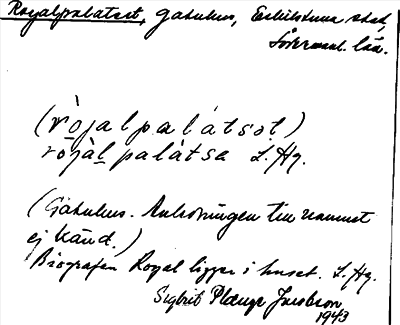 Royalpalatset, gathus, Eskilstuna stad,
Södermanl. län.
(ròjalpalátsət)
rojàl palátsa L. Hg.
(Gatuhus. Anledningen till namnet
ej känd.)
Biografen Royal ligger i huset. L. Hg.
Sigbrit Plænge Jacobson
1943